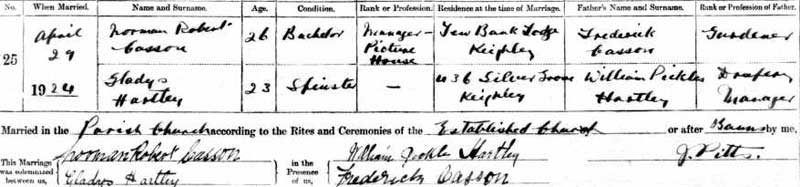 No. When Married. Name and Surname. Age. Condition. Rank or Profession. Residence at the time of Marriage. Father's Name and Surname. Rank or Profession of Father.
25 April 29 1924 Norman Robert Casson 26 Bachelor Manager - Picture House Yew Bank Lodge Keighley Frederick Casson Gardener
Gladys Hartley 23 Spinster — 36 Silver Keighley William Pickles Hartley Manager
Married in the Parish Church according to the Rites and Ceremonies of the Established Church or after Banns by me,
This Marriage was solemnized between us, Norman Robert Casson Gladys Hartley in the Presence of us, William Pickles Hartley Frederick Casson J. Pitts.